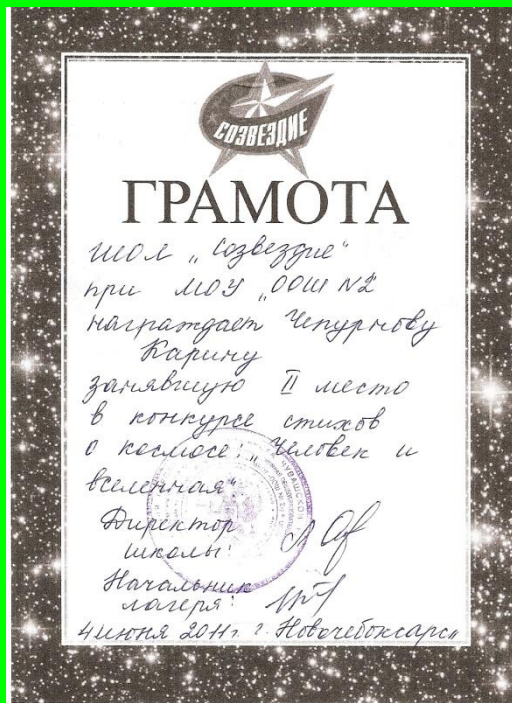 СОЗВЕЗДИЕ
ГРАМОТА
ШОЛ „Созвездие"
при МОУ „ООШ №2
награждает Чепурнову
Карину
занявшую II место
в конкурсе стихов
о космосе: „Человек и
вселенная"
Директор
школы:
Начальник
лагеря:
4 июня 2011г. г. Новочебоксарск